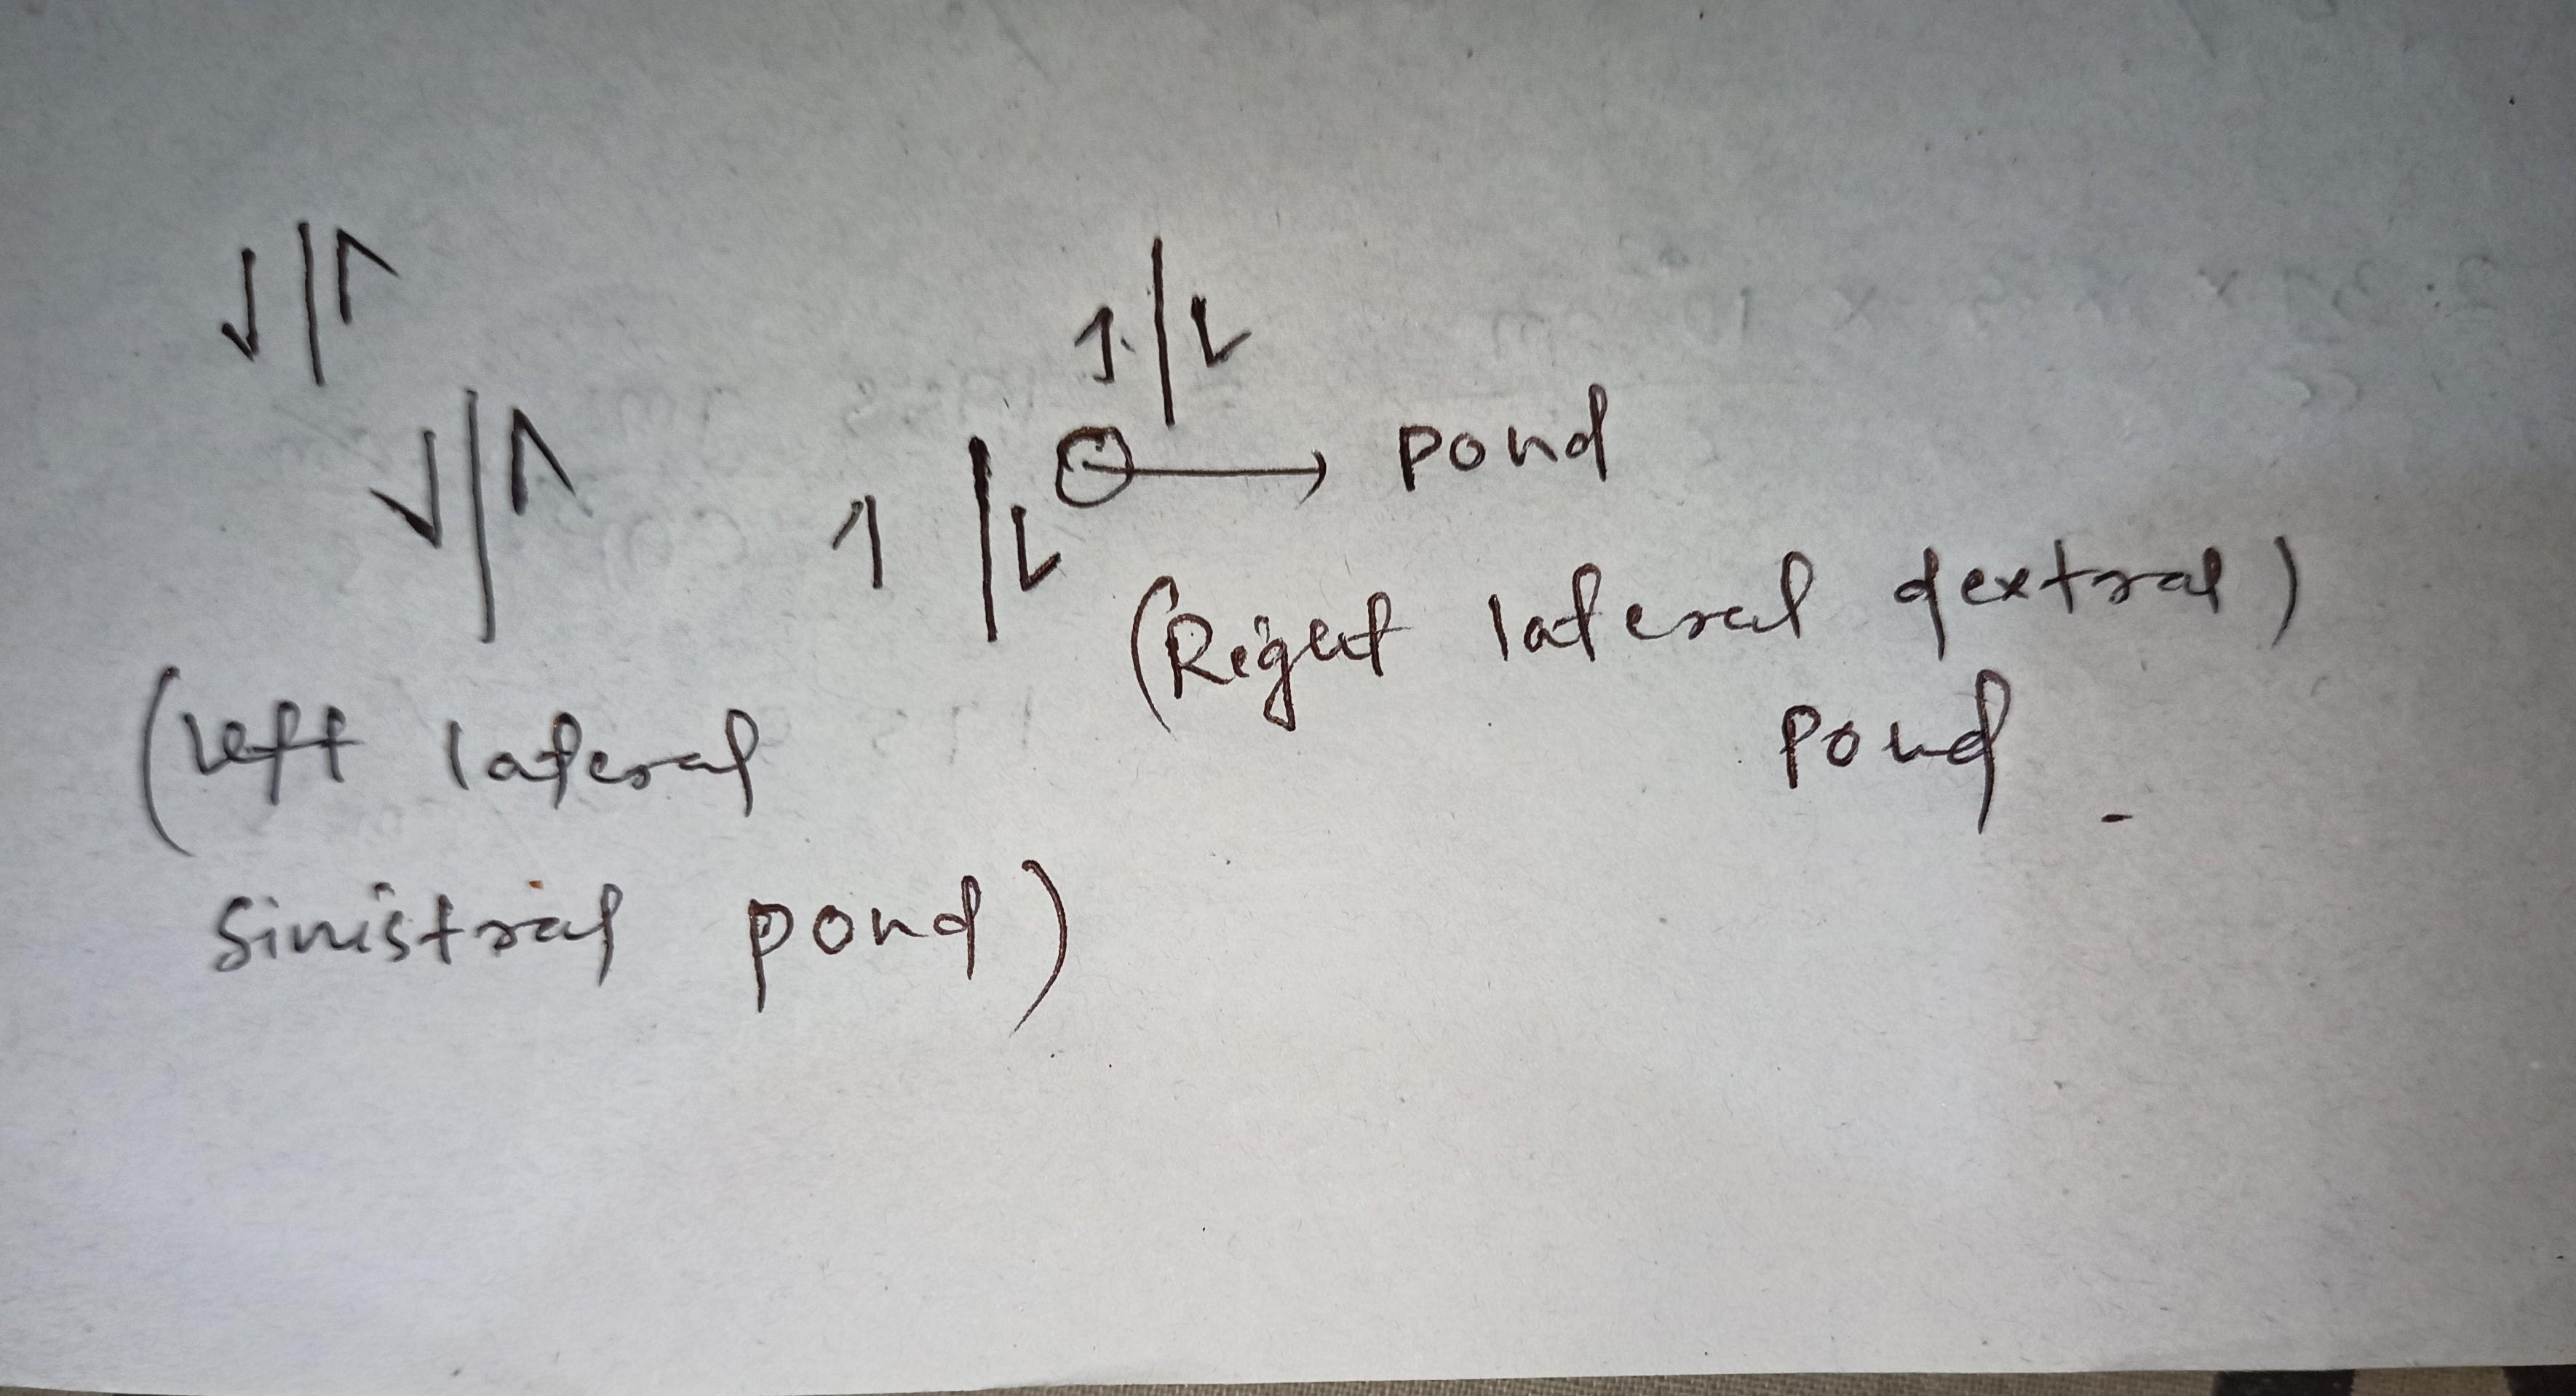 pond
(Right lateral dextral)
pond
(Left lateral
Sinistral pond)